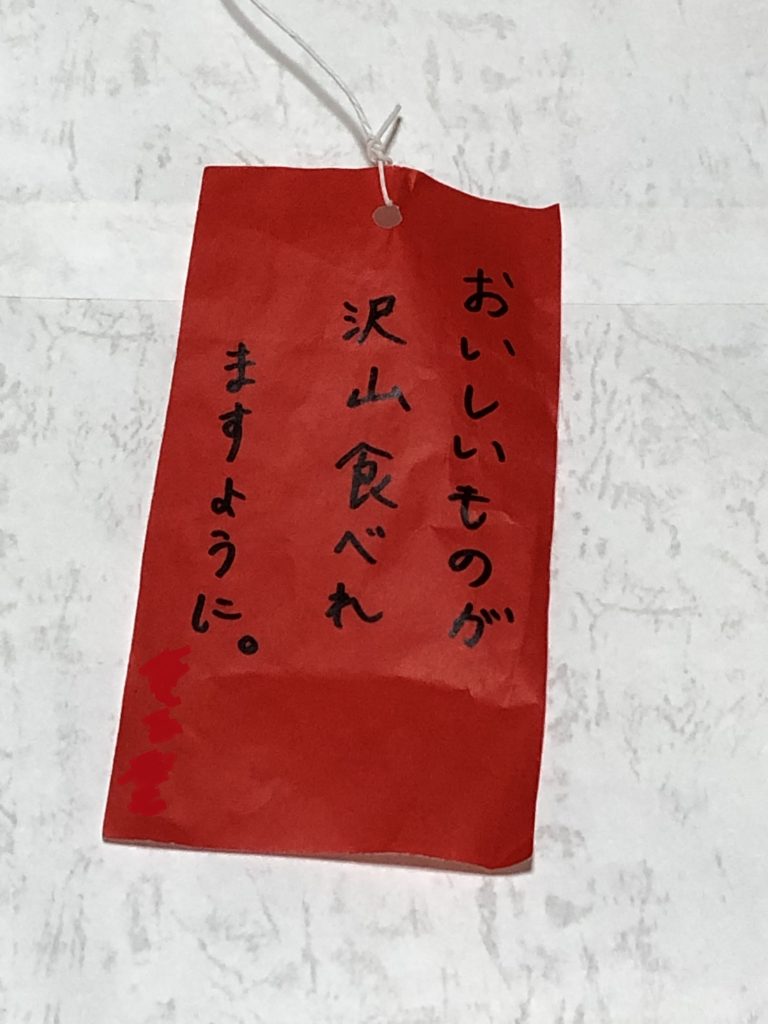 おいしいものが
沢山食べれ
ますように。